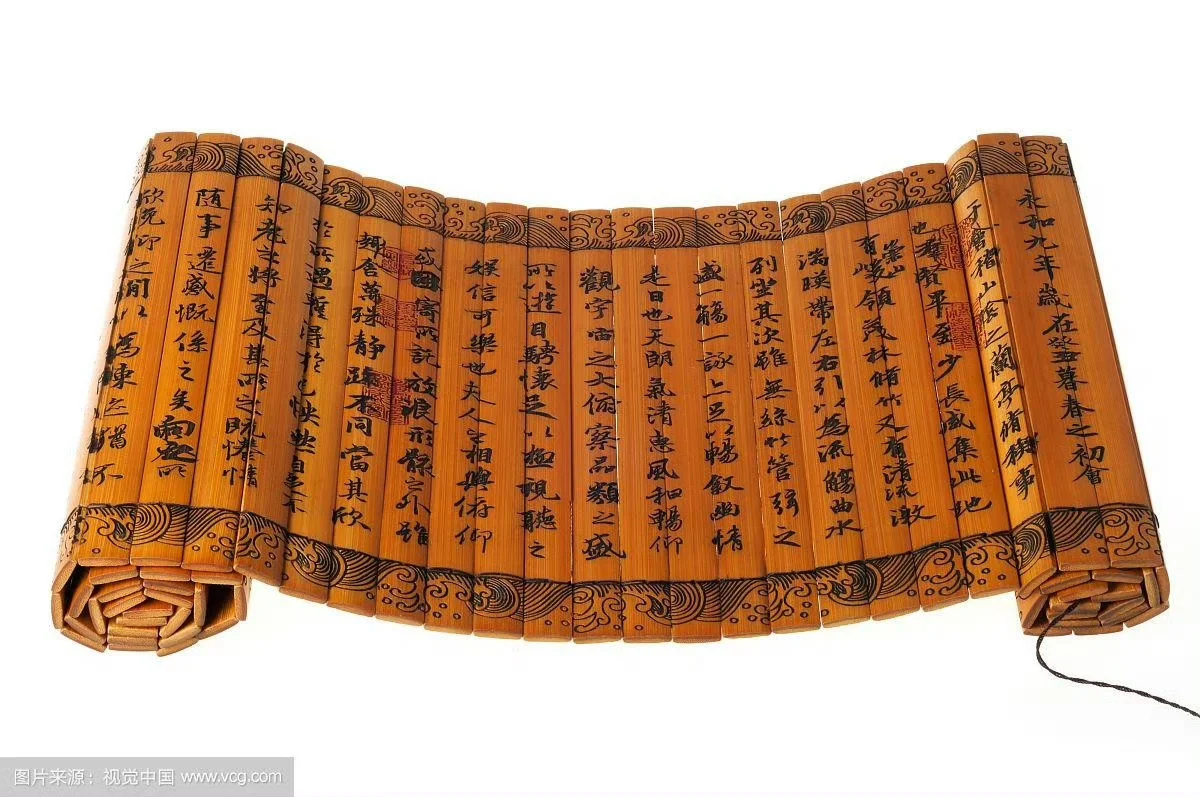 永和九年歲在癸丑暮春之初會
于會稽山陰之蘭亭脩稧事
也羣賢畢至少長咸集此地
有崇山峻領茂林脩竹又有清流激
湍暎帶左右引以為流觴曲水
列坐其次雖無絲竹管弦之
盛一觴一詠亦足以暢敘幽情
是日也天朗氣清惠風和暢仰
觀宇宙之大俯察品類之盛
所以遊目騁懷足以極視聽之
娛信可樂也夫人之相與俯仰
因寄所託放浪形骸之外雖
趣舍萬殊靜躁不同當其欣
於所遇暫得於己怏然自足不
知老之將至及其所之既惓情
隨事遷感慨係之矣向之所
欣俛仰之閒以為陳迹猶不
图片来源：视觉中国 www.vcg.com